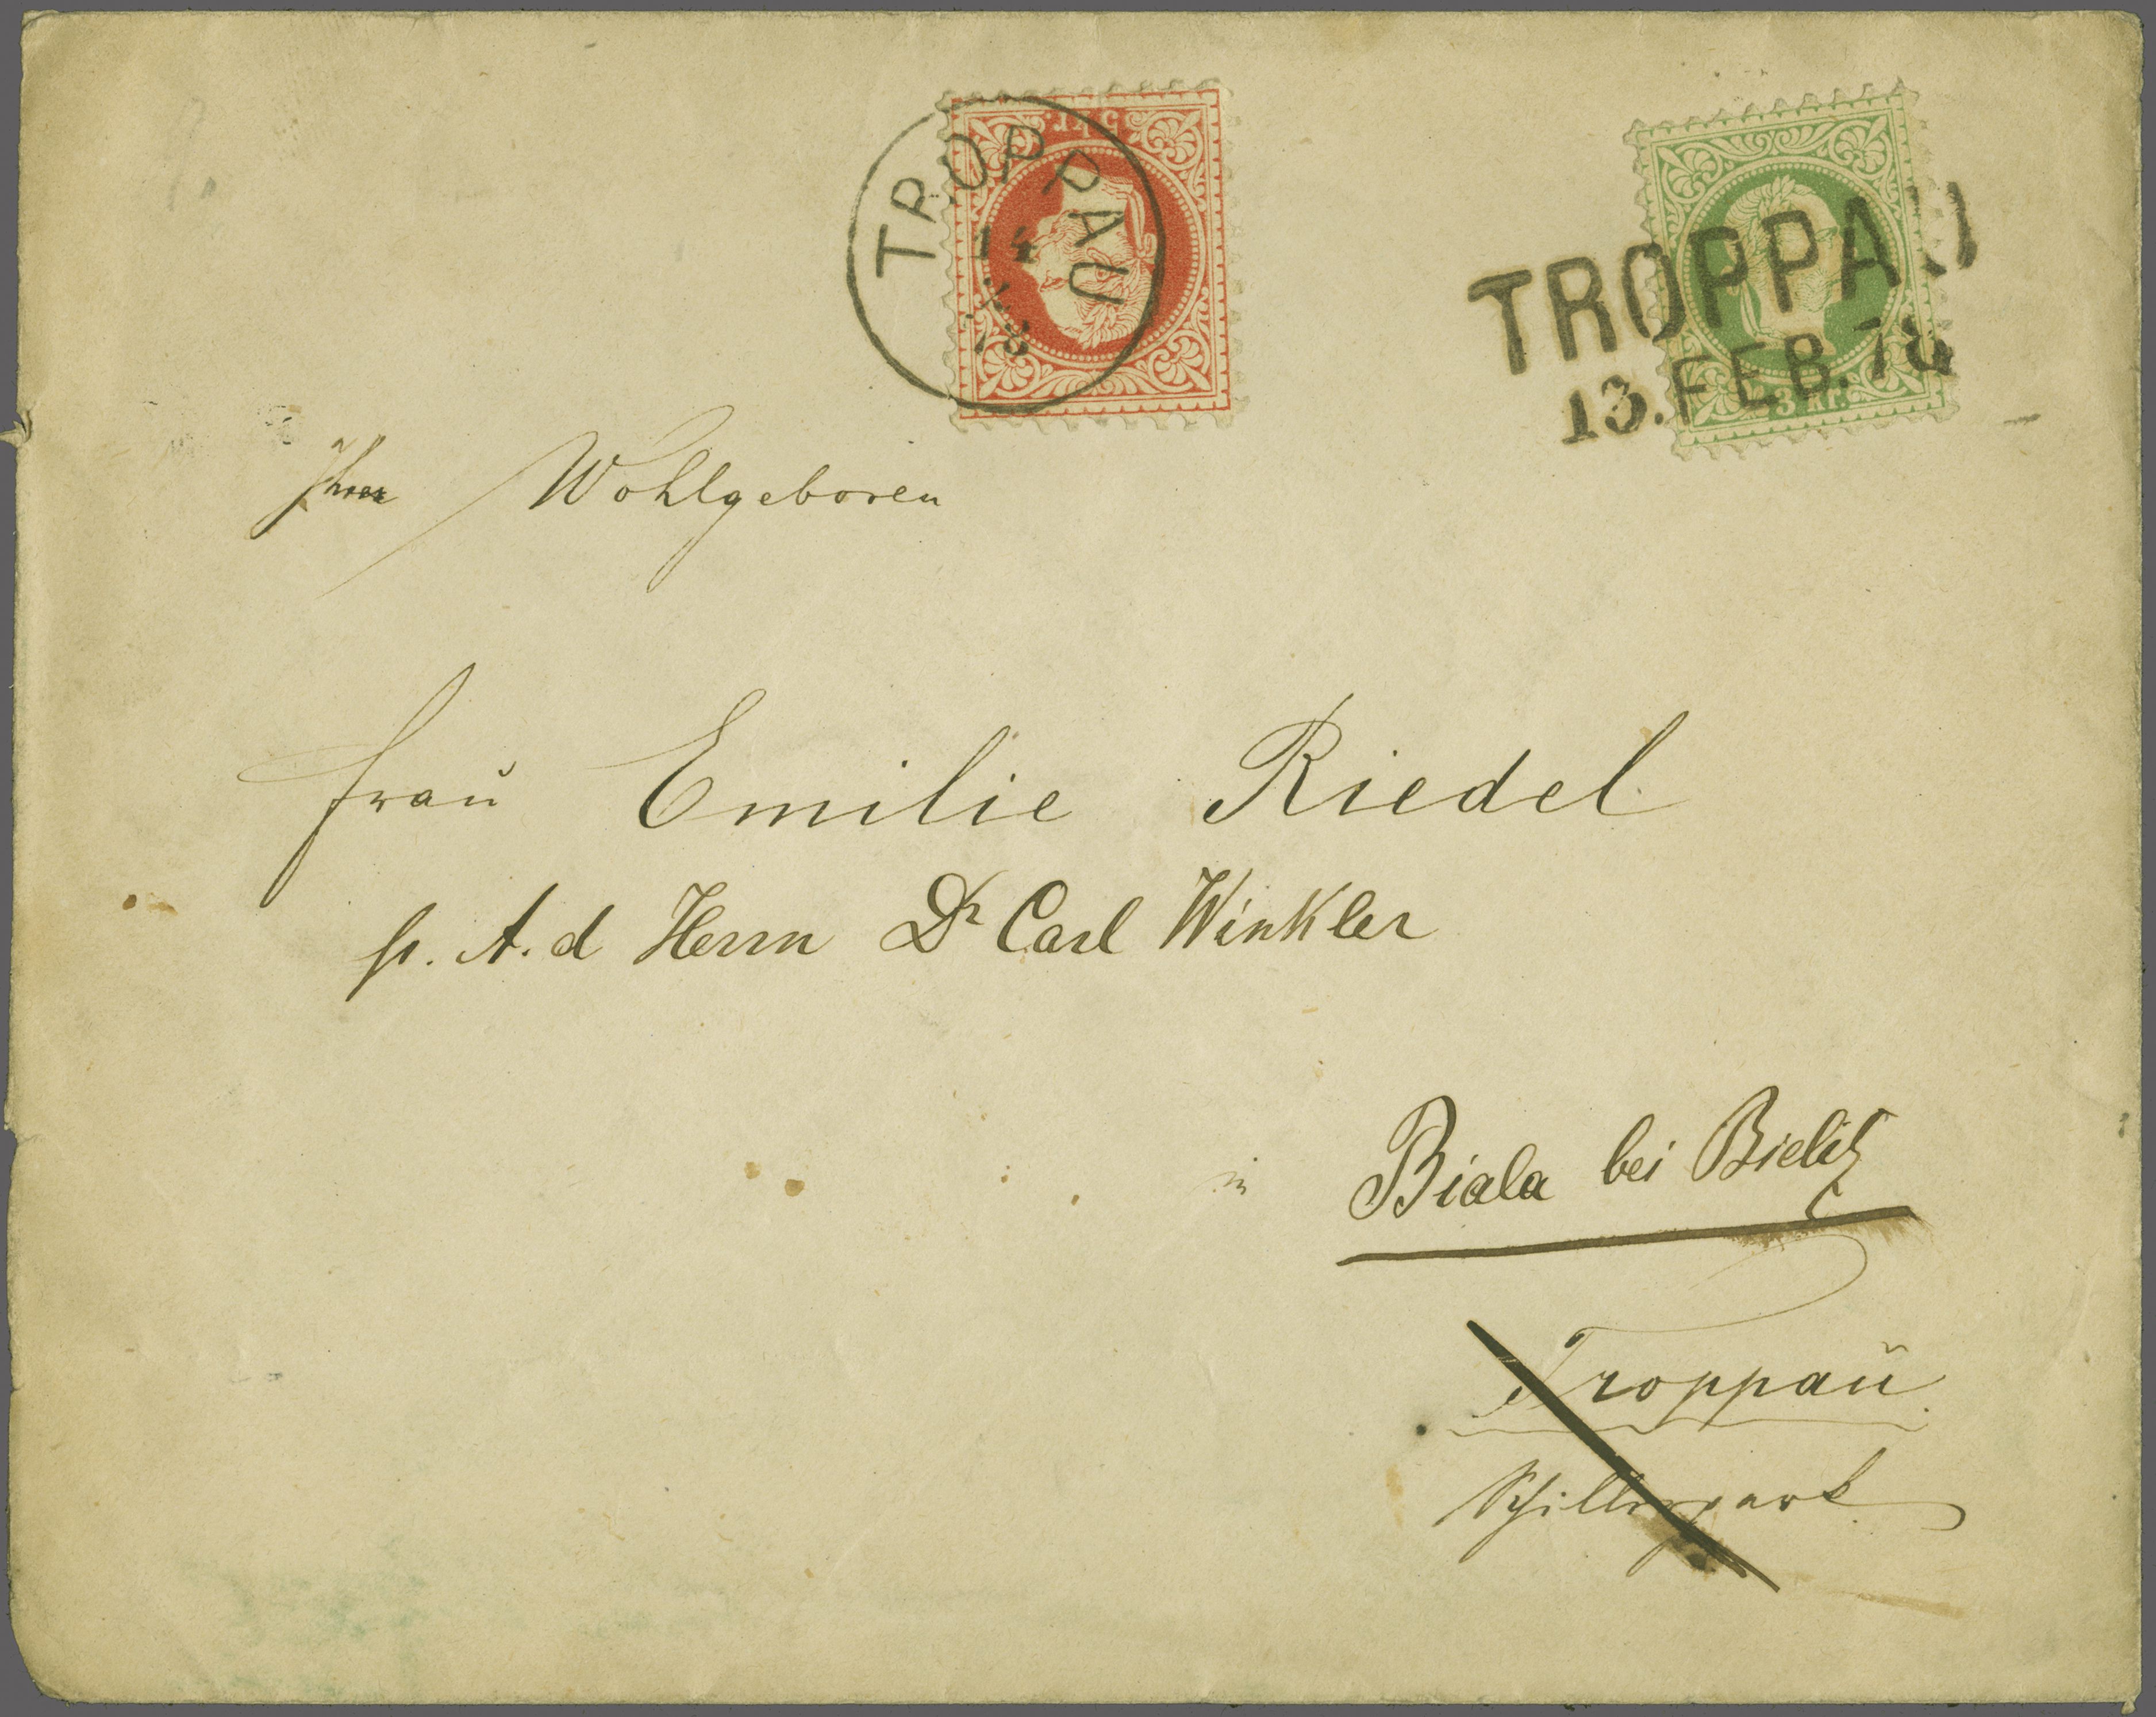 5 kr.
TROPPAU
14
78
3 kr.
TROPPAU
13. FEB. 78
Ihrer Wohlgeboren
Frau Emilie Riedel
p. A. d Herrn Dr Carl Winkler
in Biala bei Bielitz
Troppau
Schillerpark